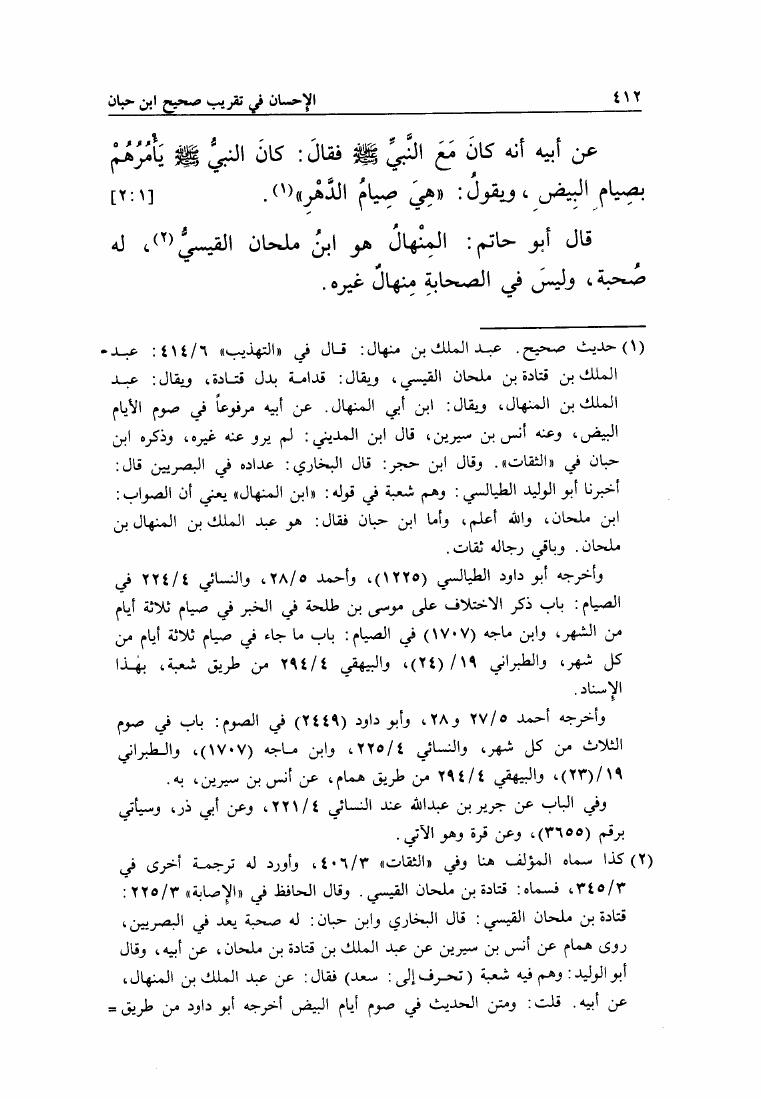 ٤١٢ الإحسان في تقريب صحيح ابن حبان
عن أبيه أنه كانَ مَعَ النَّبيِّ ﷺ فقالَ: كانَ النبيُّ ﷺ يَأْمُرُهُمْ
بصِيامِ البِيضِ، ويقولُ: «هِيَ صِيامُ الدَّهْرِ»(١). [٢:١]
قال أبو حاتم: المِنْهالُ هو ابنُ ملحان القيسيُّ(٢)، له
صُحبة، وليسَ في الصحابةِ مِنهالٌ غيره.
(١) حديث صحيح. عبد الملك بن منهال: قال في «التهذيب» ٤١٤/٦: عبد-
الملك بن قتادة بن ملحان القيسي، ويقال: قدامة بدل قتادة، ويقال: عبد
الملك بن المنهال، ويقال: ابن أبي المنهال. عن أبيه مرفوعاً في صوم الأيام
البيض، وعنه أنس بن سيرين، قال ابن المديني: لم يرو عنه غيره، وذكره ابن
حبان في «الثقات». وقال ابن حجر: قال البخاري: عداده في البصريين قال:
أخبرنا أبو الوليد الطيالسي: وهم شعبة في قوله: «ابن المنهال» يعني أن الصواب:
ابن ملحان، والله أعلم، وأما ابن حبان فقال: هو عبد الملك بن المنهال بن
ملحان. وباقي رجاله ثقات.
وأخرجه أبو داود الطيالسي (١٢٢٥)، وأحمد ٢٨/٥، والنسائي ٢٢٤/٤ في
الصيام: باب ذكر الاختلاف على موسى بن طلحة في الخبر في صيام ثلاثة أيام
من الشهر، وابن ماجه (١٧٠٧) في الصيام: باب ما جاء في صيام ثلاثة أيام من
كل شهر، والطبراني ١٩/(٢٤)، والبيهقي ٢٩٤/٤ من طريق شعبة، بهٰذا
الإسناد.
وأخرجه أحمد ٢٧/٥ و٢٨، وأبو داود (٢٤٤٩) في الصوم: باب في صوم
الثلاث من كل شهر، والنسائي ٢٢٥/٤، وابن ماجه (١٧٠٧)، والطبراني
١٩/(٢٣)، والبيهقي ٢٩٤/٤ من طريق همام، عن أنس بن سيرين، به.
وفي الباب عن جرير بن عبدالله عند النسائي ٢٢١/٤، وعن أبي ذر، وسيأتي
برقم (٣٦٥٥)، وعن قرة وهو الآتي.
(٢) كذا سماه المؤلف هنا وفي «الثقات» ٤٠٦/٣، وأورد له ترجمة أخرى في
٣٤٥/٣، فسماه: قتادة بن ملحان القيسي. وقال الحافظ في «الإصابة» ٢٢٥/٣:
قتادة بن ملحان القيسي: قال البخاري وابن حبان: له صحبة يعد في البصريين،
روى همام عن أنس بن سيرين عن عبد الملك بن قتادة بن ملحان، عن أبيه، وقال
أبو الوليد: وهم فيه شعبة (تحرف إلى: سعد) فقال: عن عبد الملك بن المنهال،
عن أبيه. قلت: ومتن الحديث في صوم أيام البيض أخرجه أبو داود من طريق =